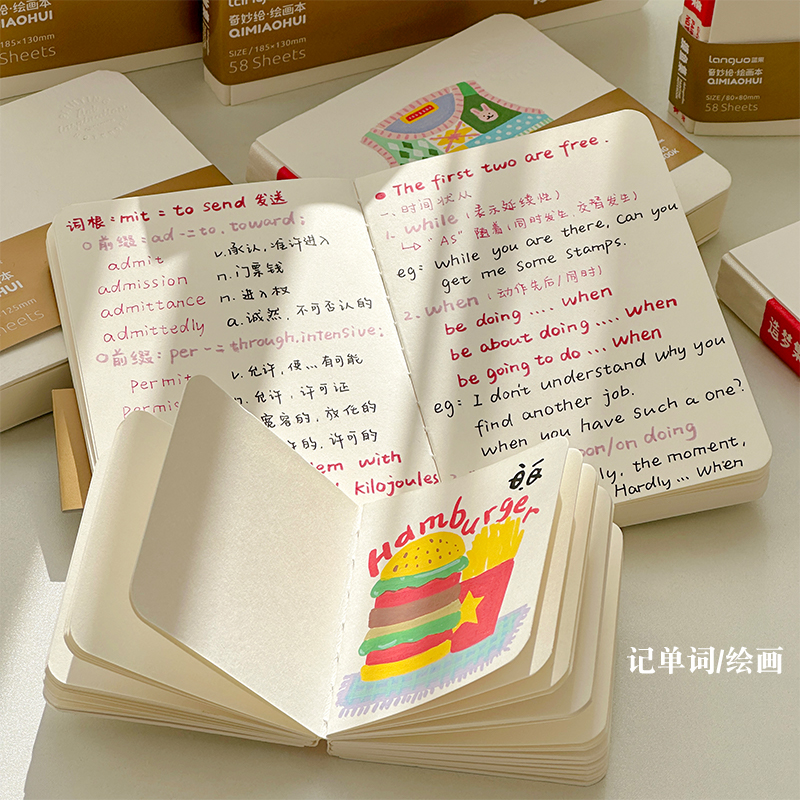 languo
奇妙绘·绘画本
QIMIAOHUI
SIZE / 185×130mm
58 Sheets
185×130mm
58 Sheets
languo 蓝果
奇妙绘·绘画本
QIMIAOHUI
SIZE / 80×80mm
58 Sheets
词根:mit = to send 发送
前缀:ad -=to. toward:
admit v.承认,准许进入
admission n.门票钱
admittance n.进入权
admittedly a.诚然,不可否认的
前缀:per -= through.intensive:
Permit v.允许,使...有可能
允许,许可证
宽容的,放任的
的,许可的
em with
kilojoules
The first two are free.
一、时间状从
1. while (表示延续性)
"AS" 随着(同时发生,交替发生)
eg: While you are there, can you
get me some stamps.
2. when (动作先后/同时)
be doing .... when
be about doing .... when
be going to do ... when
eg: I don't understand why you
find another job.
when you have such a one?
on/on doing
ly, the moment,
Hardly... When
Hamburger
造梦
记单词/绘画